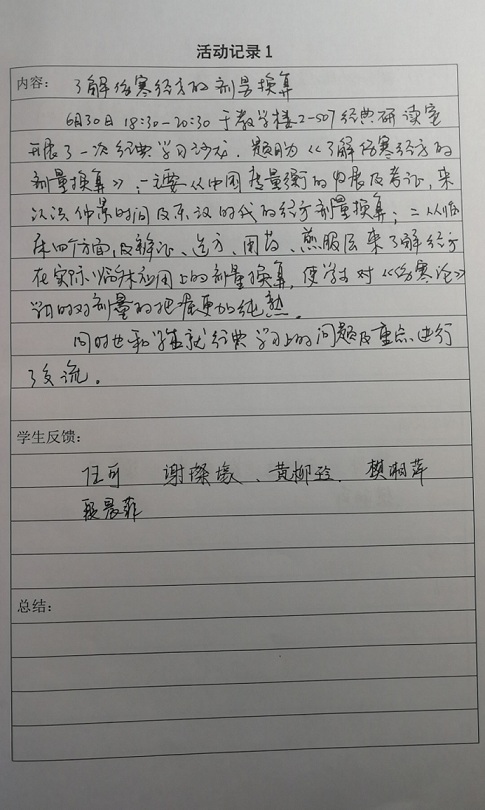 活动记录1
内容: 了解伤寒经方的剂量换算
6月30日 18:30-20:30 于教学楼2-507经典研读室
开展了一次经典学习沙龙,题目为《了解伤寒经方的
剂量换算》,一主要从中国度量衡的发展及考证,来
认识仲景时间及东汉时代的经方剂量换算;二从临
床四个方面,及辨证、选方、用药、煎服法来了解经方
在实际临床应用上的剂量换算,使学生对《伤寒论》
方的对剂量的把握更加纯熟。
同时也和学生就经典学习上的问题及重点进行
了交流。
学生反馈:
任可 谢璨缘、黄柳玲、樊湘萍
段晨菲
总结: